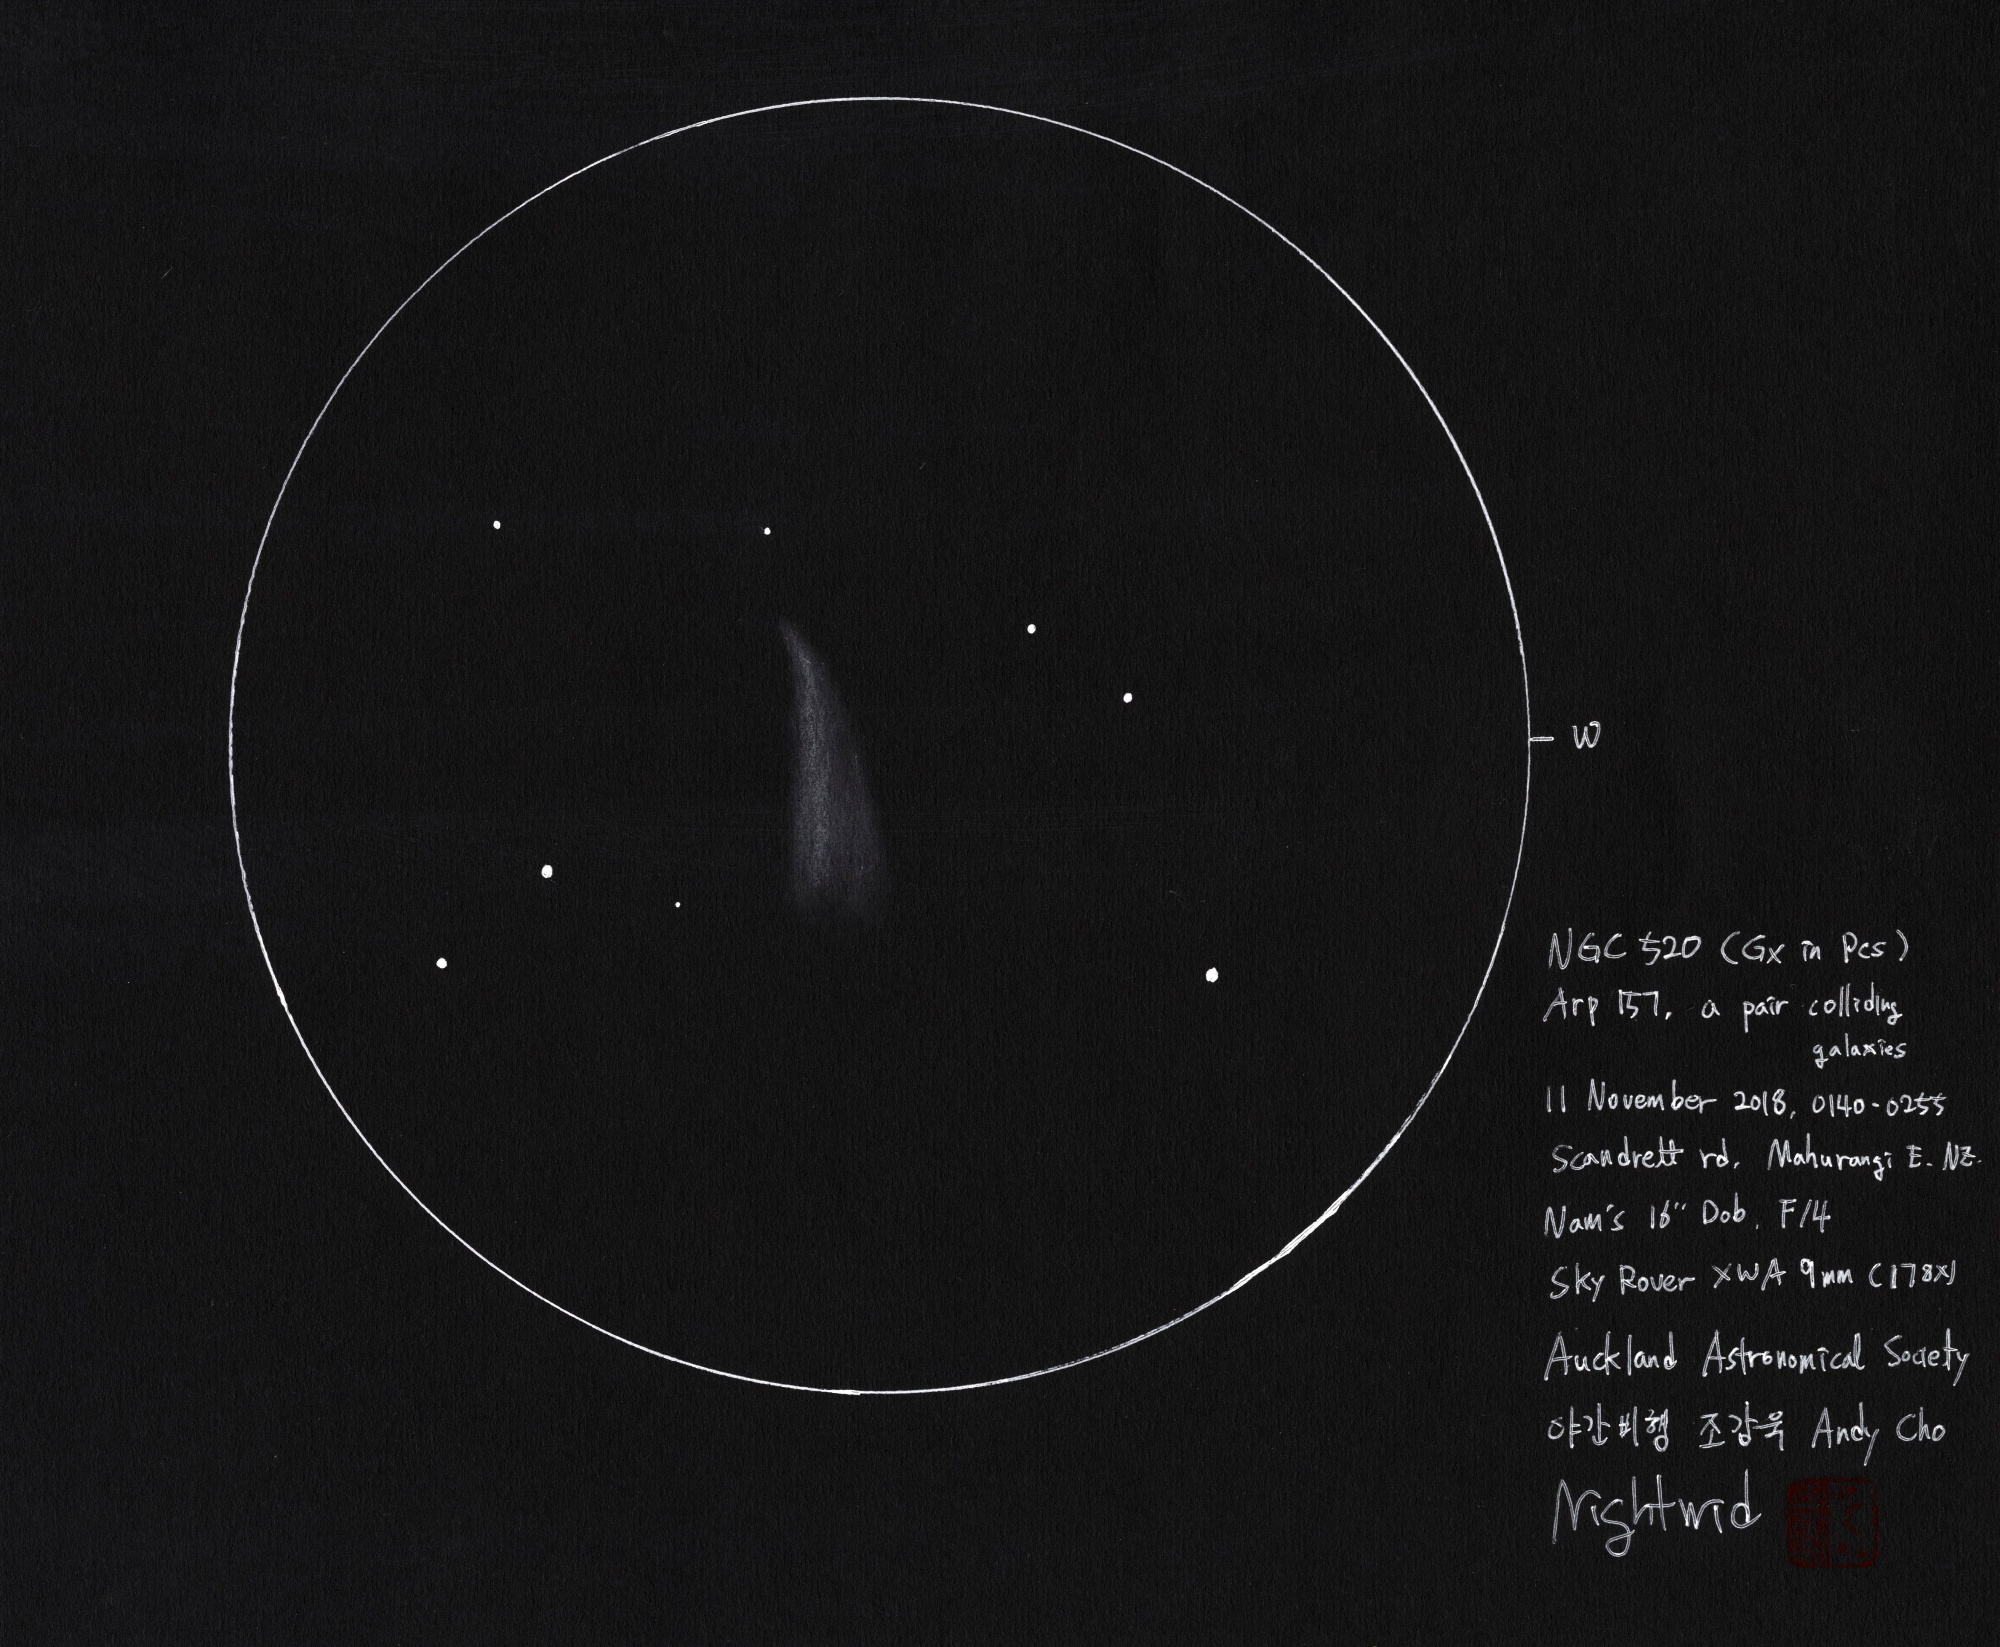 W
NGC 520 (Gx in Pcs)
Arp 157, a pair colliding
galaxies
11 November 2018, 0140-0255
Scandrett rd, Mahurangi E. NZ.
Nam's 16" Dob, F/4
Sky Rover XWA 9mm (178X)
Auckland Astronomical Society
야간비행 조강욱 Andy Cho
Nightwid